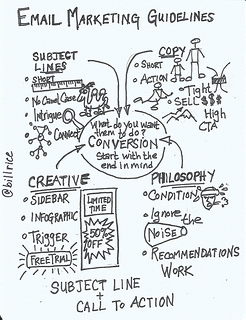 EMAIL MARKETING GUIDELINES
SUBJECT
LINES
• SHORT
• No Camel Case
• Intrigue
• Connect
COPY
• SHORT
• ACTION
• Tight
SELL $$$
High
CTA
What do you want
them to do?
CONVERSION
Start with the
end in mind
@billrice
CREATIVE
• SIDEBAR
• INFOGRAPHIC
• Trigger
FREE TRIAL
LIMITED
TIME
50%
OFF
PHILOSOPHY
• CONDITION
• Ignore the
NOISE
• RECOMMENDATIONS
WORK
SUBJECT LINE
+
CALL TO ACTION